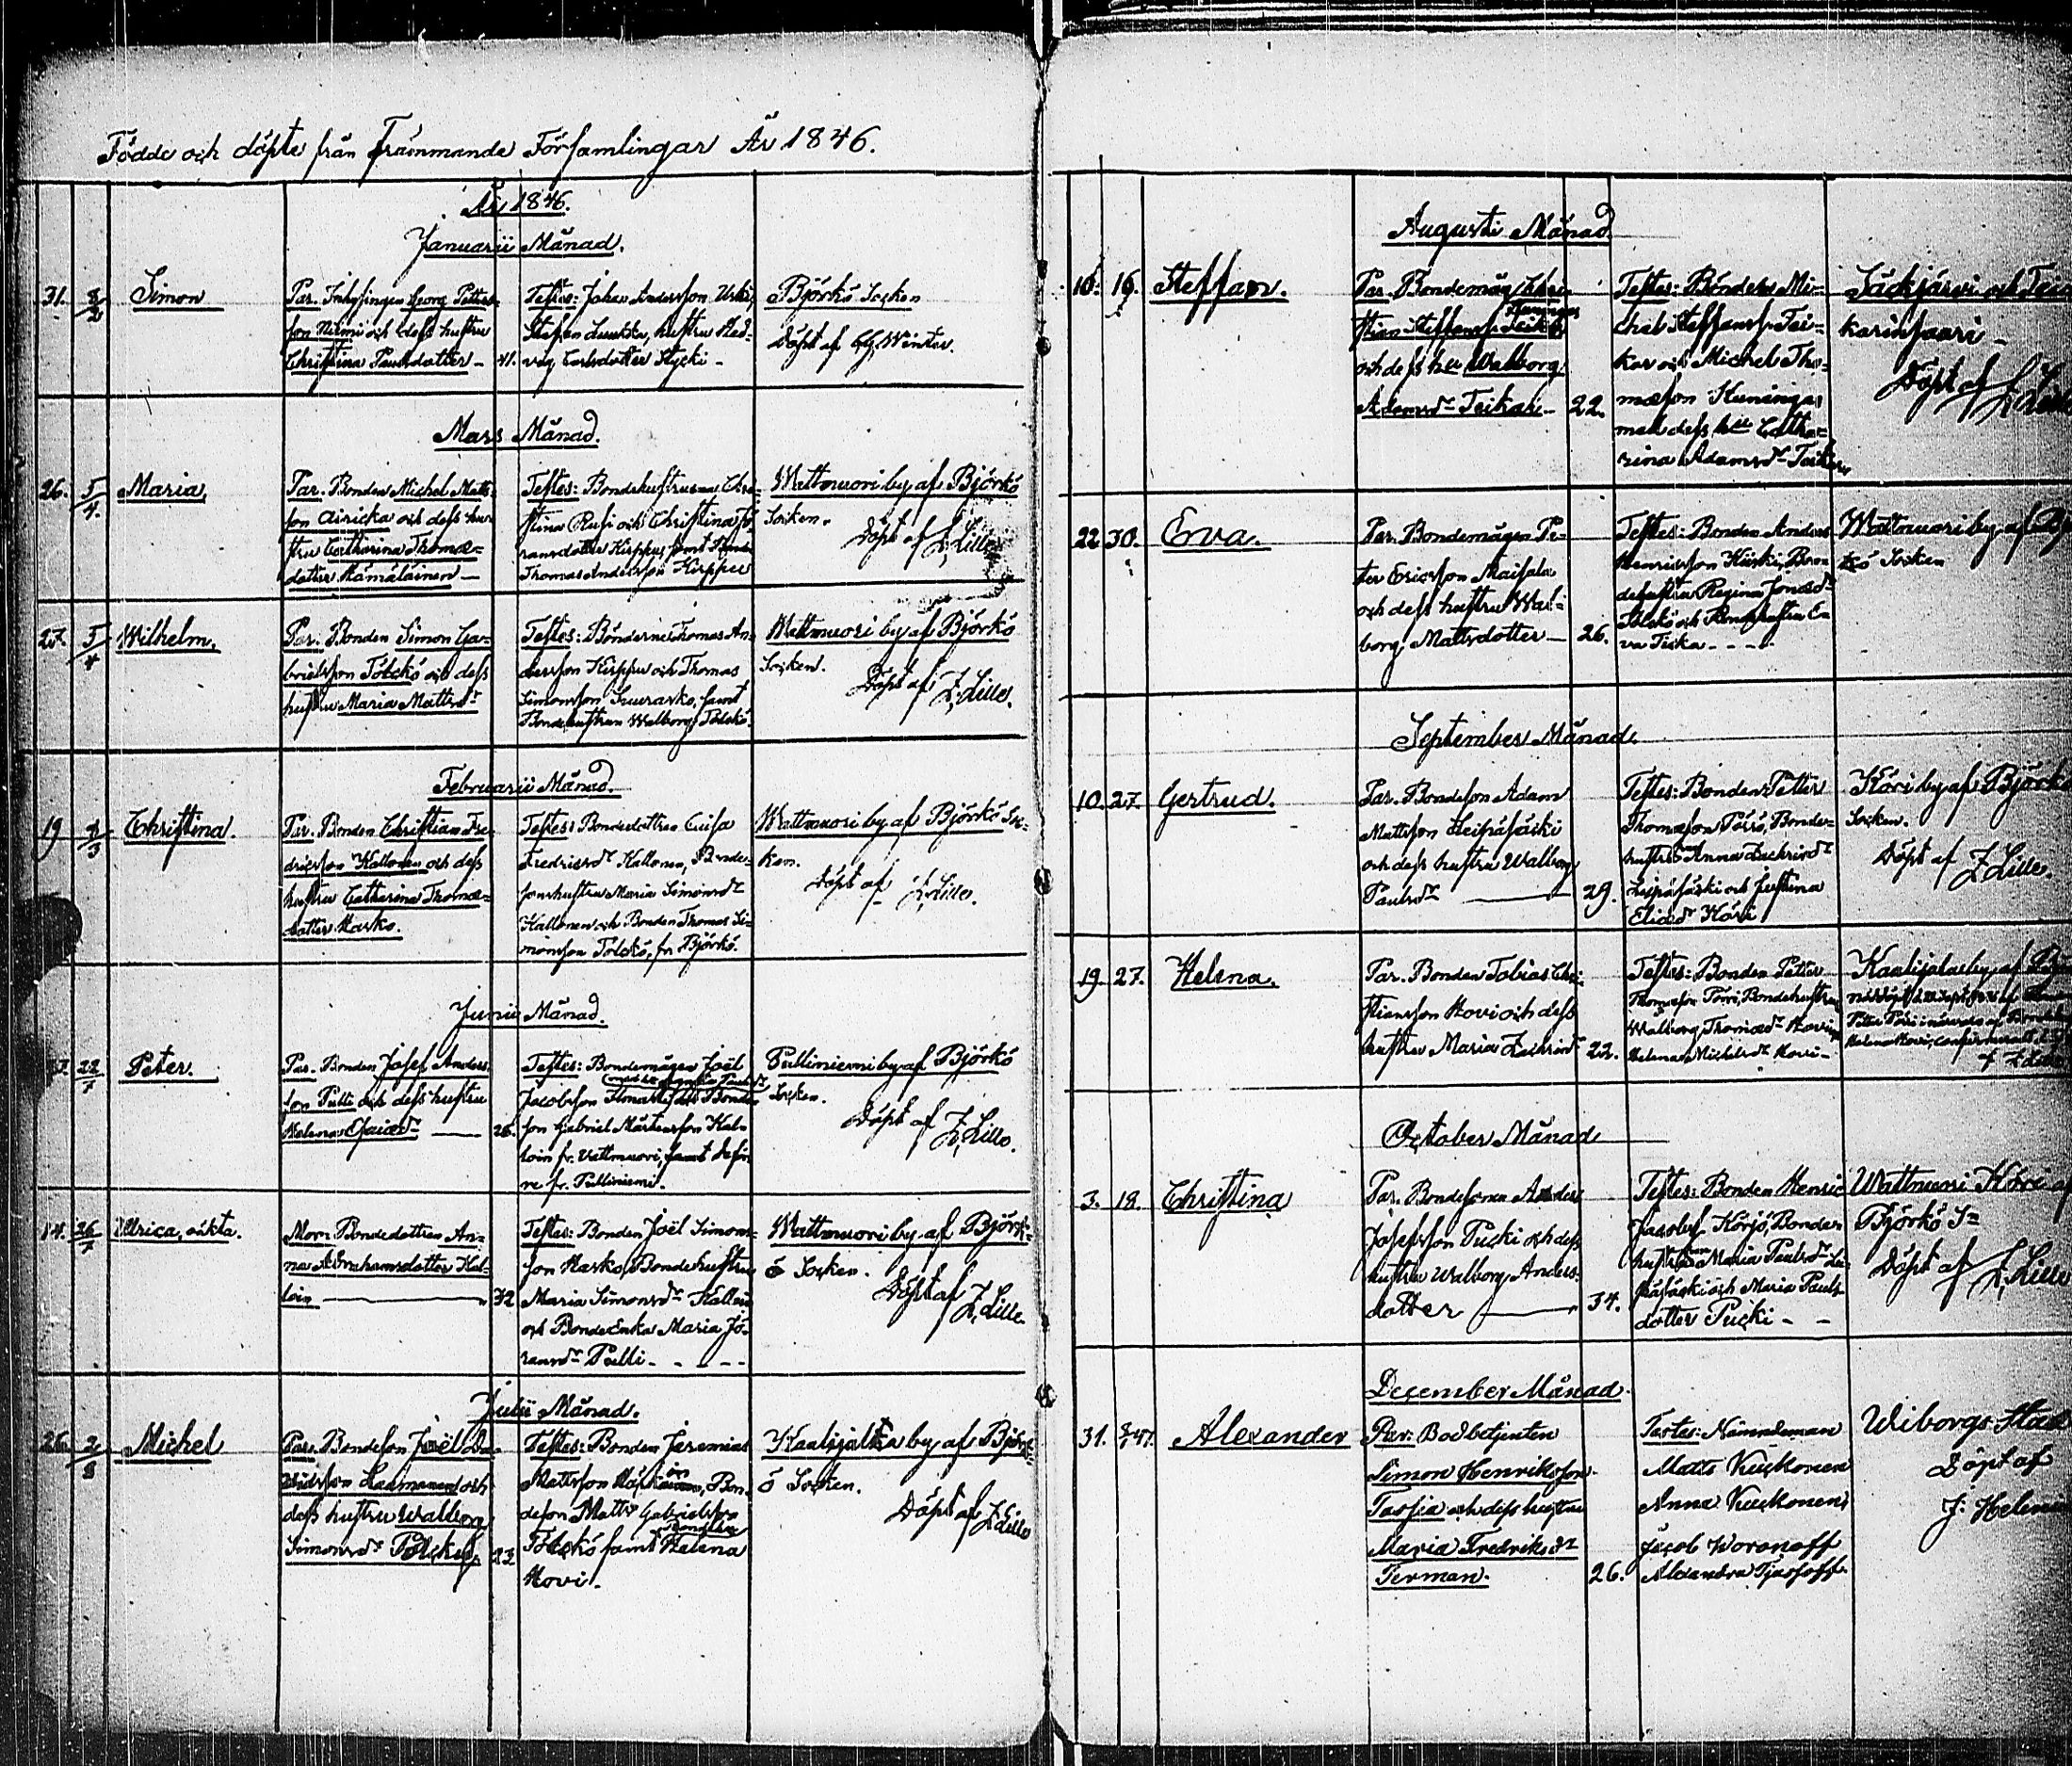 Födde och döpte från Främmande Församlingar År 1846.
År 1846.
Januarii Månad.
31. 8/2 Simon
Par. Inhysingen Georg Petters-
son Niemi och dess hustru
Christina Paulsdotter – 41.
Testes: Johan Andersson
Stefan hustru Hed-
vig Carlsdotter Hycki –
Björkö Socken
Döpt af Winter.
Mars Månad.
26. 5/4. Maria,
Par. Bonden Michel Matts-
son Airicka och dess hu-
stru Catharina Thomæ-
dotter Hämäläinen –
Testes: Bondehustrurna Chri-
stina Rusi och Christina Jö-
ransdotter Kirppu, samt
Thomas Andersson Kirppu
Wattnuori by af Björkö
Socken.
Döpt af Z, Lille
27. 5/4 Wilhelm.
Par. Bonden Simon Ga-
brielsson Tölckö och dess
hustru Maria Mattsdr
Testes: Bönderne Thomas An-
dersson Kirppu och Thomas
Simonsson samt
Bondehustrun Walborg Tölckö.
Wattnuori by af Björkö
Socken.
Döpt af Z, Lille.
Februarii Månad.
19 8/3 Christina.
Par. Bonden Christian Fre-
dricsson Kallonen och dess
hustru Catharina Thomæ-
dotter Karsko.
Testes: Bondedottren Luisa
Fredricsdr Kallonen, Bonde-
sonshustru Maria Simonsdr
Kallonen och Bonden Thomas Si-
monsson Tölckö, fr. Björkö.
Wattnuori by af Björkö Soc-
ken.
Döpt af Z, Lille.
Junii Månad.
22/7 Peter.
Par. Bonden Josef Anders-
son Pulli och dess hustru
Helena Esaiædr — 26.
Testes: Bondemågen Joël
Jacobsson Bonde-
son Gabriel Mårtensson Hal-
loin fr. Wattnuori, samt
re fr. Pulliniemi.
Pulliniemi by af Björkö
Socken.
Döpt af Z, Lille.
14. 26/7 Ulrica, oäkta.
Mor: Bondedottren An-
na Abrahamsdotter Hal-
loin — 32
Testes: Bonden Joël Simons-
son Karsko, Bondehustrun
Maria Simonsdr Halloin
och BondeEnka Maria Jö-
ransdr Pulli – – – –
Wattnuori by af Björk-
ö Socken.
Döpt af Z, Lille.
Julii Månad.
26. 2/8 Michel
Par. Bondeson Joël Da-
vidsson och
dess hustru Walborg
Simonsdr Pölckö 23.
Testes: Bonden Jeremias
Mattsson Bon-
deson Matts Gabrielsson
Tölckö samt Helena
Hovi.
Kaalijalka by af Björk-
ö Socken.
Döpt af Z Lille
Augusti Månad
10. 16. Steffan.
Par. Bondemåg Chri-
stian Steffanss. Teikar
och dess hu Walborg
Adamsdr Teikar – 22.
Testes: Bönderne Mi-
chel Steffanss. Tei-
kar och Michel Tho-
mæson Kuningas
med dess hu Catha-
rina Adamsdr Teikar
karinsaari –
Döpt af Z, Lille
22 30. Eva.
Par. Bondemågen Pe-
ter Ericsson Maisala
och dess hustru Wal-
borg Mattsdotter – 26.
Testes: Bonden Anders
Henricsson Kiiski, Bon-
dehustru Regina Jonæd.
Tölckö och Bondehustru E-
va Tiska – – – –
Wattnuori by af Bj
kö Socken
September Månad
10. 27. Gertrud.
Par. Bondeson Adam
Mattsson Leipäjäski
och dess hustru Walborg
Paulsdr — 29.
Testes: Bonden Petter
Thomæson Törrö, Bonde-
hustru Anna Zachrisdr
Leipäjäski och Justina
Eliædr Höri
Höri by af Björkö
Socken.
Döpt af Z Lille.
19. 27. Helena.
Par. Bonden Tobias Chri-
stiansson Hovi och dess
hustru Maria Zachrisdr 22.
Testes: Bonden Petter
Thomæson Törri, Bondehustru
Walborg Thomædr Hovi
Helena Michelsdr Hovi –
Kaalijala by af Bj
October Månad
3. 18. Christina
Par. Bondesonen Anders
Josefsson Pucki och dess
hustru Walborg Anders-
dotter — 34.
Testes: Bonden Henric
Jacobss. Körjö, Bonde-
hustrun Maria Paulsdr Lei-
päjäski och Maria Pauls-
dotter Pucki – –
Wattnuori Höri
Björkö Sn
Döpt af Z, Lille
December Månad.
31. 47. Alexander
Par: Bodbetjenten
Simon Henriksson
Tassia och dess hustru
Maria Fredriksdr
Terman. 26.
Testes: Nämndeman
Matts Kuckonen
Anna Kuckonen
Jacob Woronoff
Alexandra Tjasoff.
Wiborgs Stad
Döpt af
J. Helen